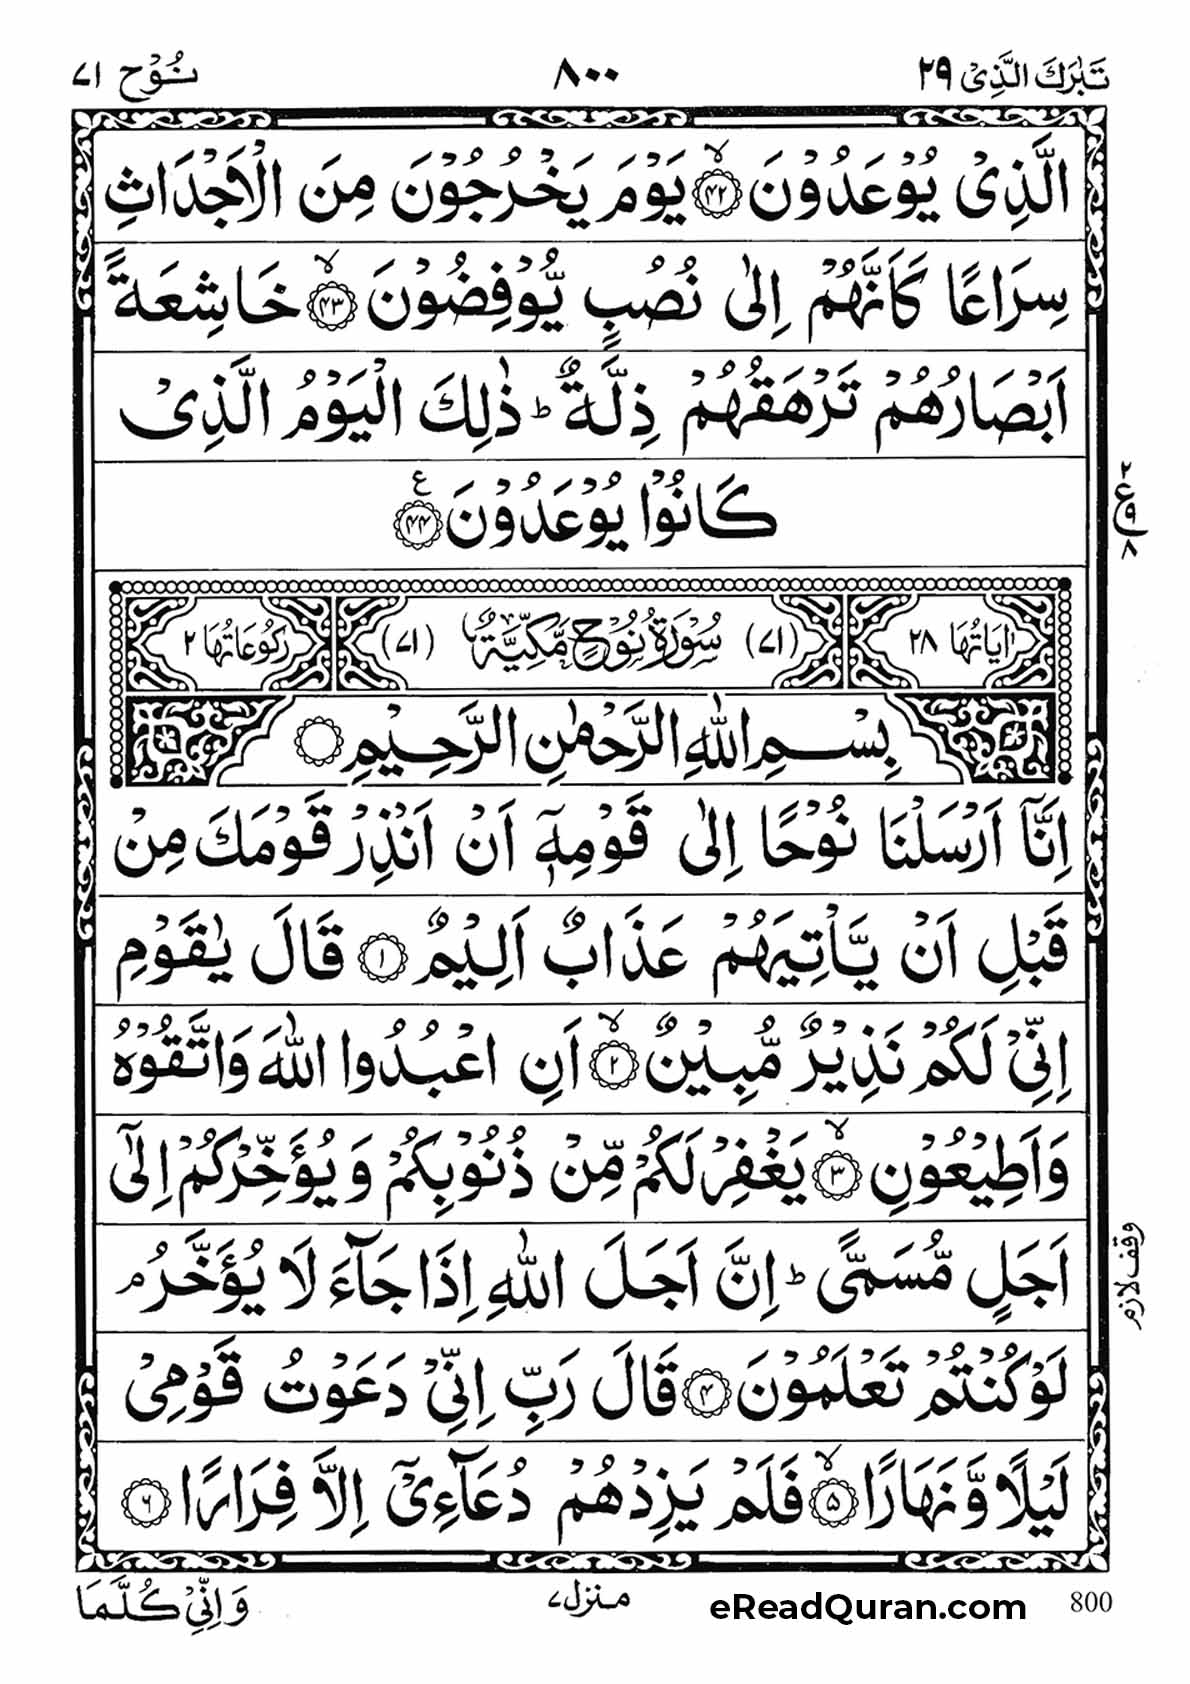 تَبٰرَكَ الَّذِیْ ٢٩
٨٠٠
نُوْح ٧١
الَّذِیْ یُوْعَدُوْنَ ۙ﴿٤٢﴾ یَوْمَ یَخْرُجُوْنَ مِنَ الْاَجْدَاثِ
سِرَاعًا كَاَنَّهُمْ اِلٰی نُصُبٍ یُّوْفِضُوْنَ ۙ﴿٤٣﴾ خَاشِعَةً
اَبْصَارُهُمْ تَرْهَقُهُمْ ذِلَّةٌ ؕ ذٰلِكَ الْیَوْمُ الَّذِیْ
كَانُوْا یُوْعَدُوْنَ ﴿٤٤﴾ ع
٢
ع
٩
٨
اٰیَاتُهَا ٢٨
(٧١) سُوْرَةُ نُوْحٍ مَّكِّیَّةٌ (٧١)
رُكُوْعَاتُهَا ٢
بِسْمِ اللّٰهِ الرَّحْمٰنِ الرَّحِیْمِ
اِنَّاۤ اَرْسَلْنَا نُوْحًا اِلٰی قَوْمِهٖۤ اَنْ اَنْذِرْ قَوْمَكَ مِنْ
قَبْلِ اَنْ یَّاْتِیَهُمْ عَذَابٌ اَلِیْمٌ ﴿١﴾ قَالَ یٰقَوْمِ
اِنِّیْ لَكُمْ نَذِیْرٌ مُّبِیْنٌ ۙ﴿٢﴾ اَنِ اعْبُدُوا اللّٰهَ وَاتَّقُوْهُ
وَاَطِیْعُوْنِ ۙ﴿٣﴾ یَغْفِرْ لَكُمْ مِّنْ ذُنُوْبِكُمْ وَیُؤَخِّرْكُمْ اِلٰۤی
اَجَلٍ مُّسَمًّی ؕ اِنَّ اَجَلَ اللّٰهِ اِذَا جَآءَ لَا یُؤَخَّرُ ۘ
وقف لازم
لَوْ كُنْتُمْ تَعْلَمُوْنَ ﴿٤﴾ قَالَ رَبِّ اِنِّیْ دَعَوْتُ قَوْمِیْ
لَیْلًا وَّنَهَارًا ۙ﴿٥﴾ فَلَمْ یَزِدْهُمْ دُعَآءِیْۤ اِلَّا فِرَارًا ﴿٦﴾
وَاِنِّیْ كُلَّمَا
منزل٧
eReadQuran.com
800